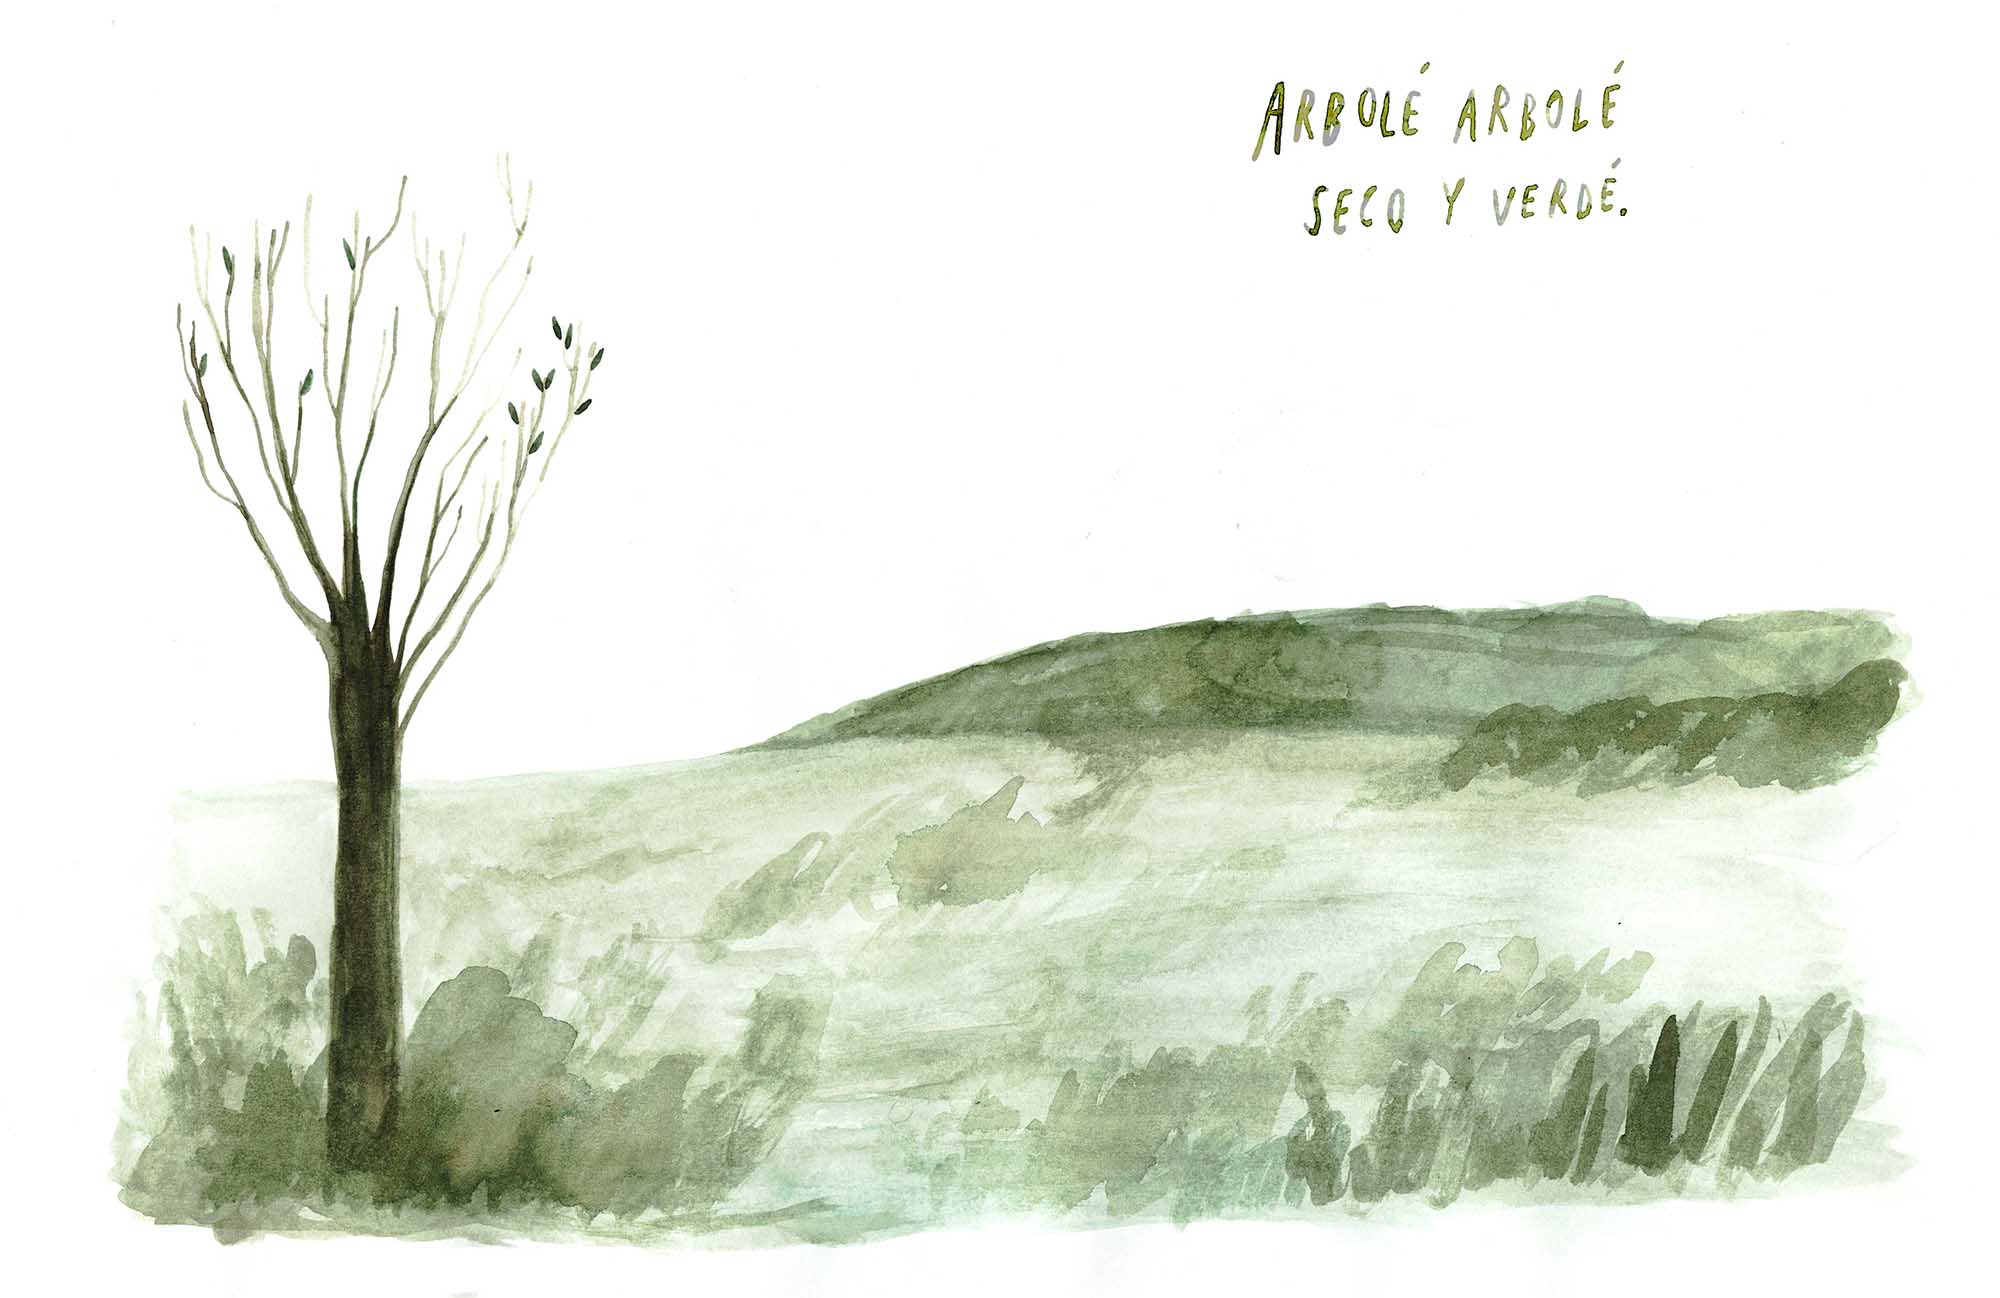 ARBOLÉ ARBOLÉ
SECO Y VERDÉ.